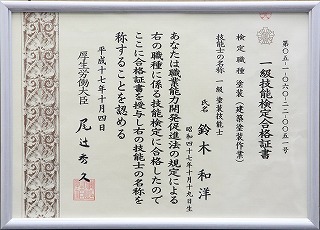 第〇五-1-〇六〇-二二-〇〇五一号
一級技能検定合格証書
検定職種 塗装(建築塗装作業)
技能士の名称 一級塗装技能士
氏名 鈴木和洋
昭和四十七年十月十九日生
あなたは職業能力開発促進法の規定による
右の職種に係る技能検定に合格したので
ここに合格証書を授与し右の技能士の名称を
称することを認める
平成十七年十月四日
厚生労働大臣 尾辻秀久